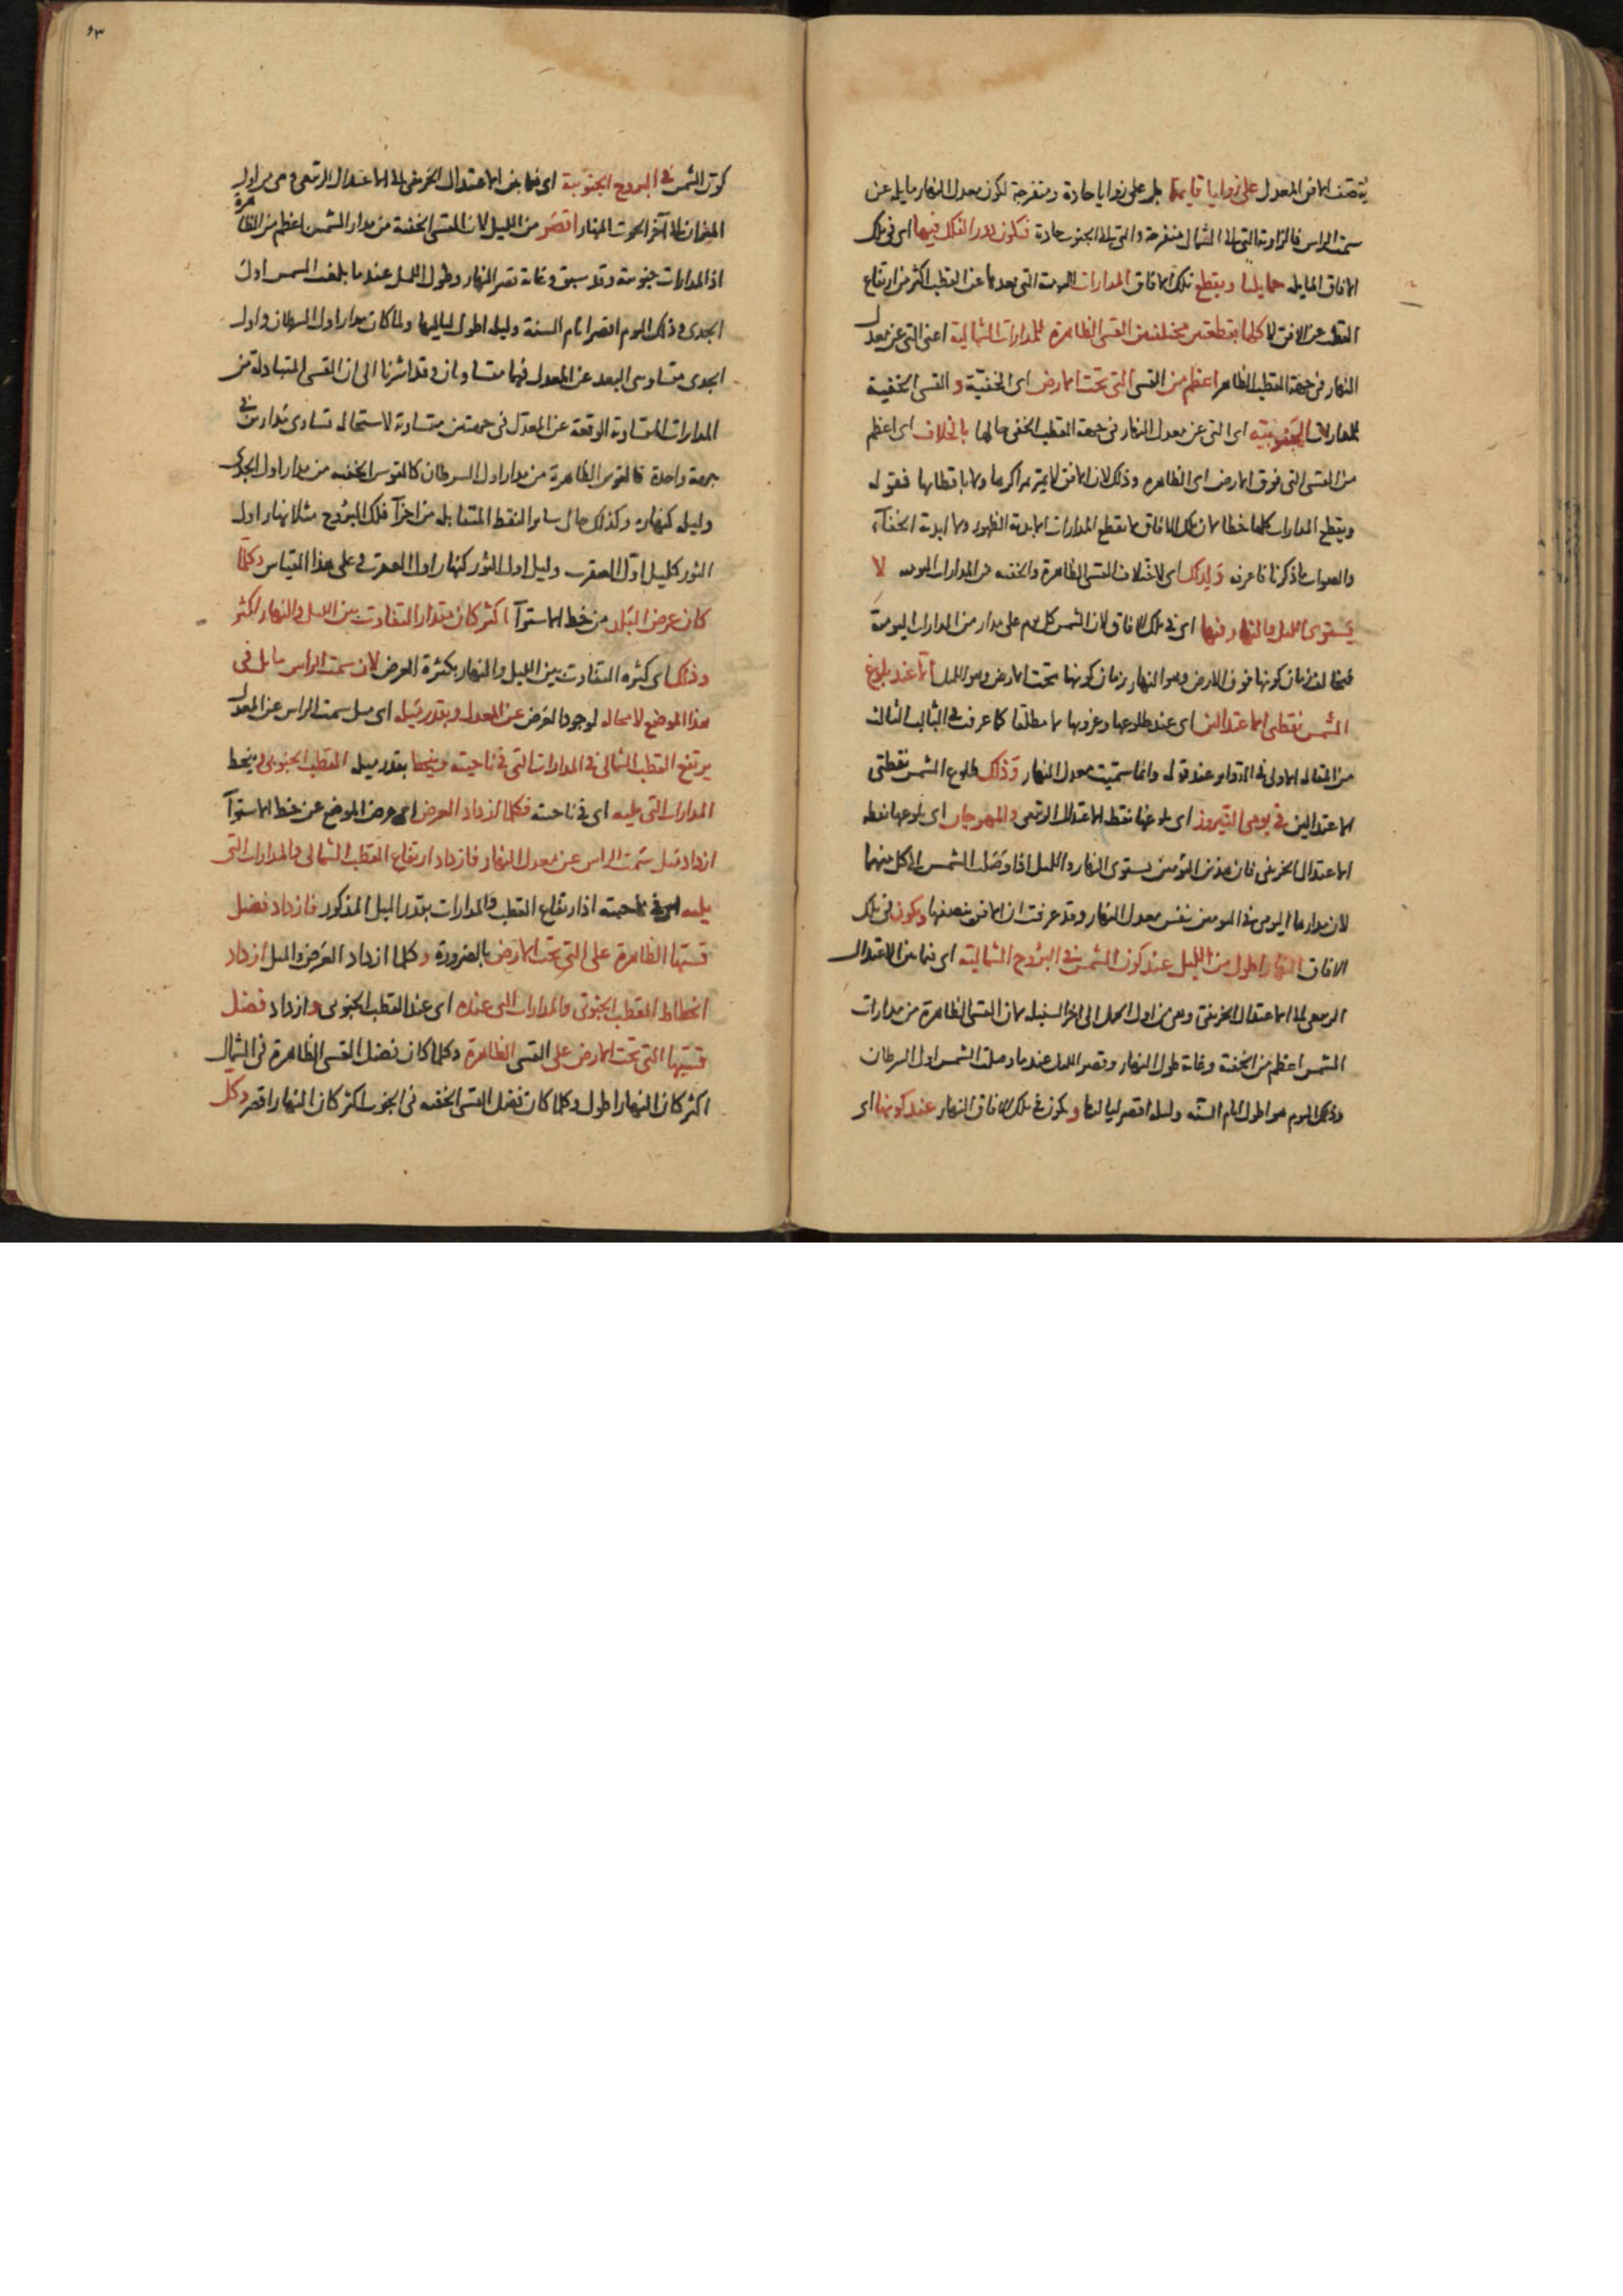 ينصف الافق المعدل على زوايا قايمة بل على زوايا حادة ومنفرجة لكون معدل النهار مايله عن
سمت الراس فالزاوية التى الى الشمال منفرجة والتى الى الجنوب حادة فتكون دور الفلك فيها اى فى تلك
الافاق المايله حمايليا ويقطع تلك الافاق المدارات اليومية التى بعدها عن القطب اكثر من ارتفاع
القطب عن الافق لا كلها بقطعتين مختلفتين القسى الظاهرة للمدارات الشمالية اعنى التى عن معدل
النهار فى جهة القطب الظاهر اعظم من القسى التى تحت الارض اى الخفيّة والقسى الخفية
للمدارات الجنوبيّة اى التى عن معدل النهار فى جهة القطب الخفى حالها بالخلاف اى اعظم
من القسى التى فوق الارض اى الظاهره وذلك لان الافق لا يمر بمراكزها ولا باقطابها فقوله
ويقطع المدارات كلها خطا لان تلك الافاق لا يقطع المدارات الابدية الظهور ولا ابدية الخفآء
والصواب ما ذكرنا فاعرفه ولذلك اى لاختلاف القسى الظاهرة والخفيه من المدارات اليوميه لا
يستوى الليل والنهار فيها اى فى تلك الافاق لان الشمس كل يوم على مدار من المدارات اليومية
فيخالف زمان كونها فوق الارض وهو النهار زمان كونها تحت الارض وهو الليل الا عند بلوغ
الشمس نقطتى الاعتدالين اى عند طلوعها وغروبها لا مطلقا كما عرفت فى الباب الثالث
من المقاله الاولى فى الدواير عند قوله وانما سميّت معدل النهار وذلك طلوع الشمس نقطتى
الاعتدالين فى يومى النيروز اى بلوغها نقطه الاعتدال الربيعى والمهرجان اى بلوغها نقطه
الاعتدال الخريفى فان هذين اليومين يستوى النهار والليل اذا وصلت الشمس الى كل منهما
لان مدارها اليومى فى اليومين نفس معدل النهار وقد عرفت ان الافق ينصفها ويكون فى تلك
الافاق النهار اطول من الليل عند كون الشمس فى البروج الشمالية اى فيما بين الاعتدال
الربيعى الى الاعتدال الخريفى وهى من اول الحمل الى اخر السنبله لان القسى الظاهرة من مدارات
الشمس اعظم من الخفية وغاية طول النهار وقصر الليل عندما وصلت الشمس اول السرطان
وذلك اليوم هو اطول ايام السنه وليله اقصر لياليها ويكون فى تلك الافاق النهار عند كونها اى
٥٣
كون الشمس فى البروج الجنوبية اى فيما بين الاعتدال الخريفى الى الاعتدال الربيعى وهى من اول
الميزان الى آخر الحوت النهار اقصر من الليل لان القسى الخفية من مدار الشمس اعظم من الظاهرة
اذ المدارات جنوبية وقد سبق وغاية قصر النهار وطول الليل عندما بلغت الشمس اول
الجدى وذلك اليوم اقصر ايام السنة وليله اطول لياليها ولما كان مدار اول السرطان واول
الجدى متساوى البعد عن المعدل فهما متساويان وقد اشرنا الى ان القسى المتبادلة من
المدارات المتساوية الوقعة عن المعدل فى جهتين متساوية لاستحالة تساوى مدارين فى
جهة واحدة فالقوس الظاهرة من مدار اول السرطان كالقوس الخفيه من مدار اول الجدى
وليله كنهاره وكذلك حال ساير النقط المتقابله من اجزآ فلك البروج مثلا نهار اول
الثور كليل اول العقرب وليل اول الثور كنهار اول العقرب وعلى هذا القياس وكلّما
كان عرض البلد من خط الاستوآ اكثر كان مقدار التفاوت بين الليل والنهار اكثر
وذلك اى كثرة التفاوت بين الليل والنهار بكثرة العرض لان سمت الراس مايل فى
هذا الموضع لا محاله لوجود العرض عن المعدل وبقدر ميله اى ميل سمت الراس عن المعدل
يرتفع القطب الشمالى فى المدارات التى فى ناحيته وينحط بقدر ميله القطب الجنوبى وينحط
المدارات التى يليه اى فى ناحيته فكلما ازداد العرض اى عرض الموضع عن خط الاستوآ
ازداد ميل سمت الراس عن معدل النهار فازداد ارتفاع القطب الشمالى والمدارات التى
يليه اى فى ناحيته اذ ارتفاع القطب والمدارات بقدر الميل المذكور فازداد فضل
قسيها الظاهرة على التى تحت الارض بالضرورة وكلما ازداد العرض والميل ازداد
انحطاط القطب الجنوبى والمدارات التى عنده اى عند القطب الجنوبى وازداد فضل
قسيها التى تحت الارض على القسى الظاهرة وكلما كان فضل القسى الظاهرة فى الشمال
اكثر كان النهار اطول وكلما كان فضل القسى الخفيه فى الجنوب اكثر كان النهار اقصر وكل